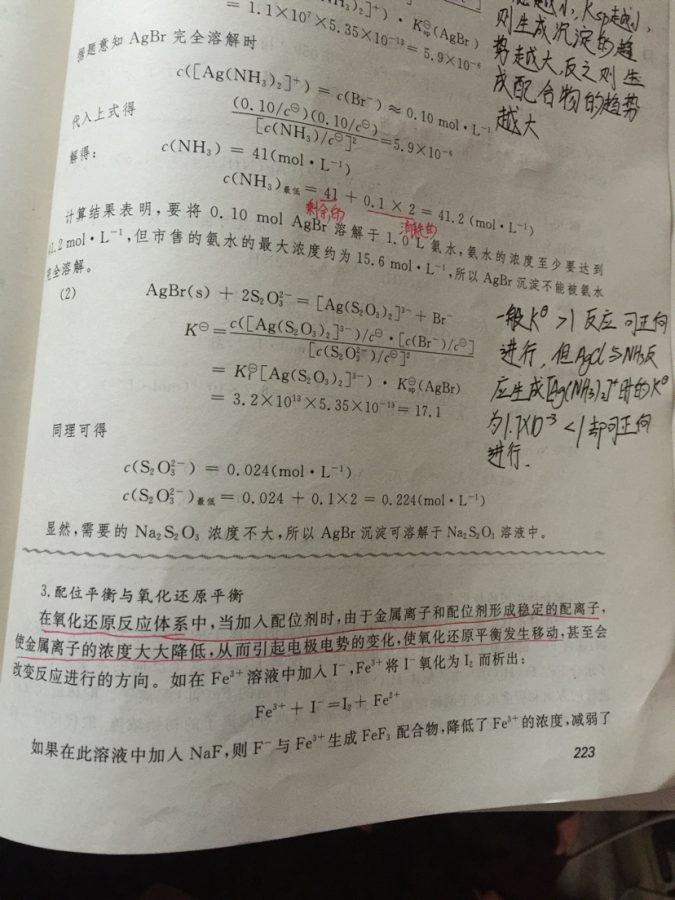 = 1.1×10⁷×5.35×10⁻¹³ = 5.9×10⁻⁶
据题意知 AgBr 完全溶解时
c([Ag(NH₃)₂]⁺) = c(Br⁻) ≈ 0.10 mol·L⁻¹
代入上式得
(0.10/c⊖)(0.10/c⊖)
[c(NH₃)/c⊖]² =5.9×10⁻⁶
解得：
c(NH₃) = 41(mol·L⁻¹)
c(NH₃)最低 = 41 + 0.1×2 = 41.2 (mol·L⁻¹)
剩余的 消耗的
计算结果表明,要将 0.10 mol AgBr 溶解于 1.0 L 氨水,氨水的浓度至少要达到
41.2 mol·L⁻¹,但市售的氨水的最大浓度约为 15.6 mol·L⁻¹,所以 AgBr 沉淀不能被氨水
完全溶解。
(2)
AgBr(s) + 2S₂O₃²⁻ = [Ag(S₂O₃)₂]³⁻ + Br⁻
K⊖ = c([Ag(S₂O₃)₂]³⁻)/c⊖·[c(Br⁻)/c⊖]
[c(S₂O₃²⁻)/c⊖]²
= Kf⊖[Ag(S₂O₃)₂]³⁻)·Ksp⊖(AgBr)
= 3.2×10¹³×5.35×10⁻¹³ = 17.1
同理可得
c(S₂O₃²⁻) = 0.024(mol·L⁻¹)
c(S₂O₃²⁻)最低 = 0.024 + 0.1×2 = 0.224(mol·L⁻¹)
显然,需要的 Na₂S₂O₃ 浓度不大,所以 AgBr 沉淀可溶解于 Na₂S₂O₃ 溶液中。
Ksp越小,
则生成沉淀的趋
势越大,反之则生
成配合物的趋势
越大
一般K⊖>1反应可正向
进行,但AgCl与NH₃反
应生成[Ag(NH₃)₂]⁺时的K⊖
为1.7×10⁻³<1却可正向
进行.
3.配位平衡与氧化还原平衡
在氧化还原反应体系中,当加入配位剂时,由于金属离子和配位剂形成稳定的配离子,
使金属离子的浓度大大降低,从而引起电极电势的变化,使氧化还原平衡发生移动,甚至会
改变反应进行的方向。如在 Fe³⁺ 溶液中加入 I⁻,Fe³⁺ 将 I⁻ 氧化为 I₂ 而析出:
Fe³⁺ + I⁻ = I₂ + Fe²⁺
如果在此溶液中加入 NaF,则 F⁻ 与 Fe³⁺ 生成 FeF₃ 配合物,降低了 Fe³⁺ 的浓度,减弱了
223